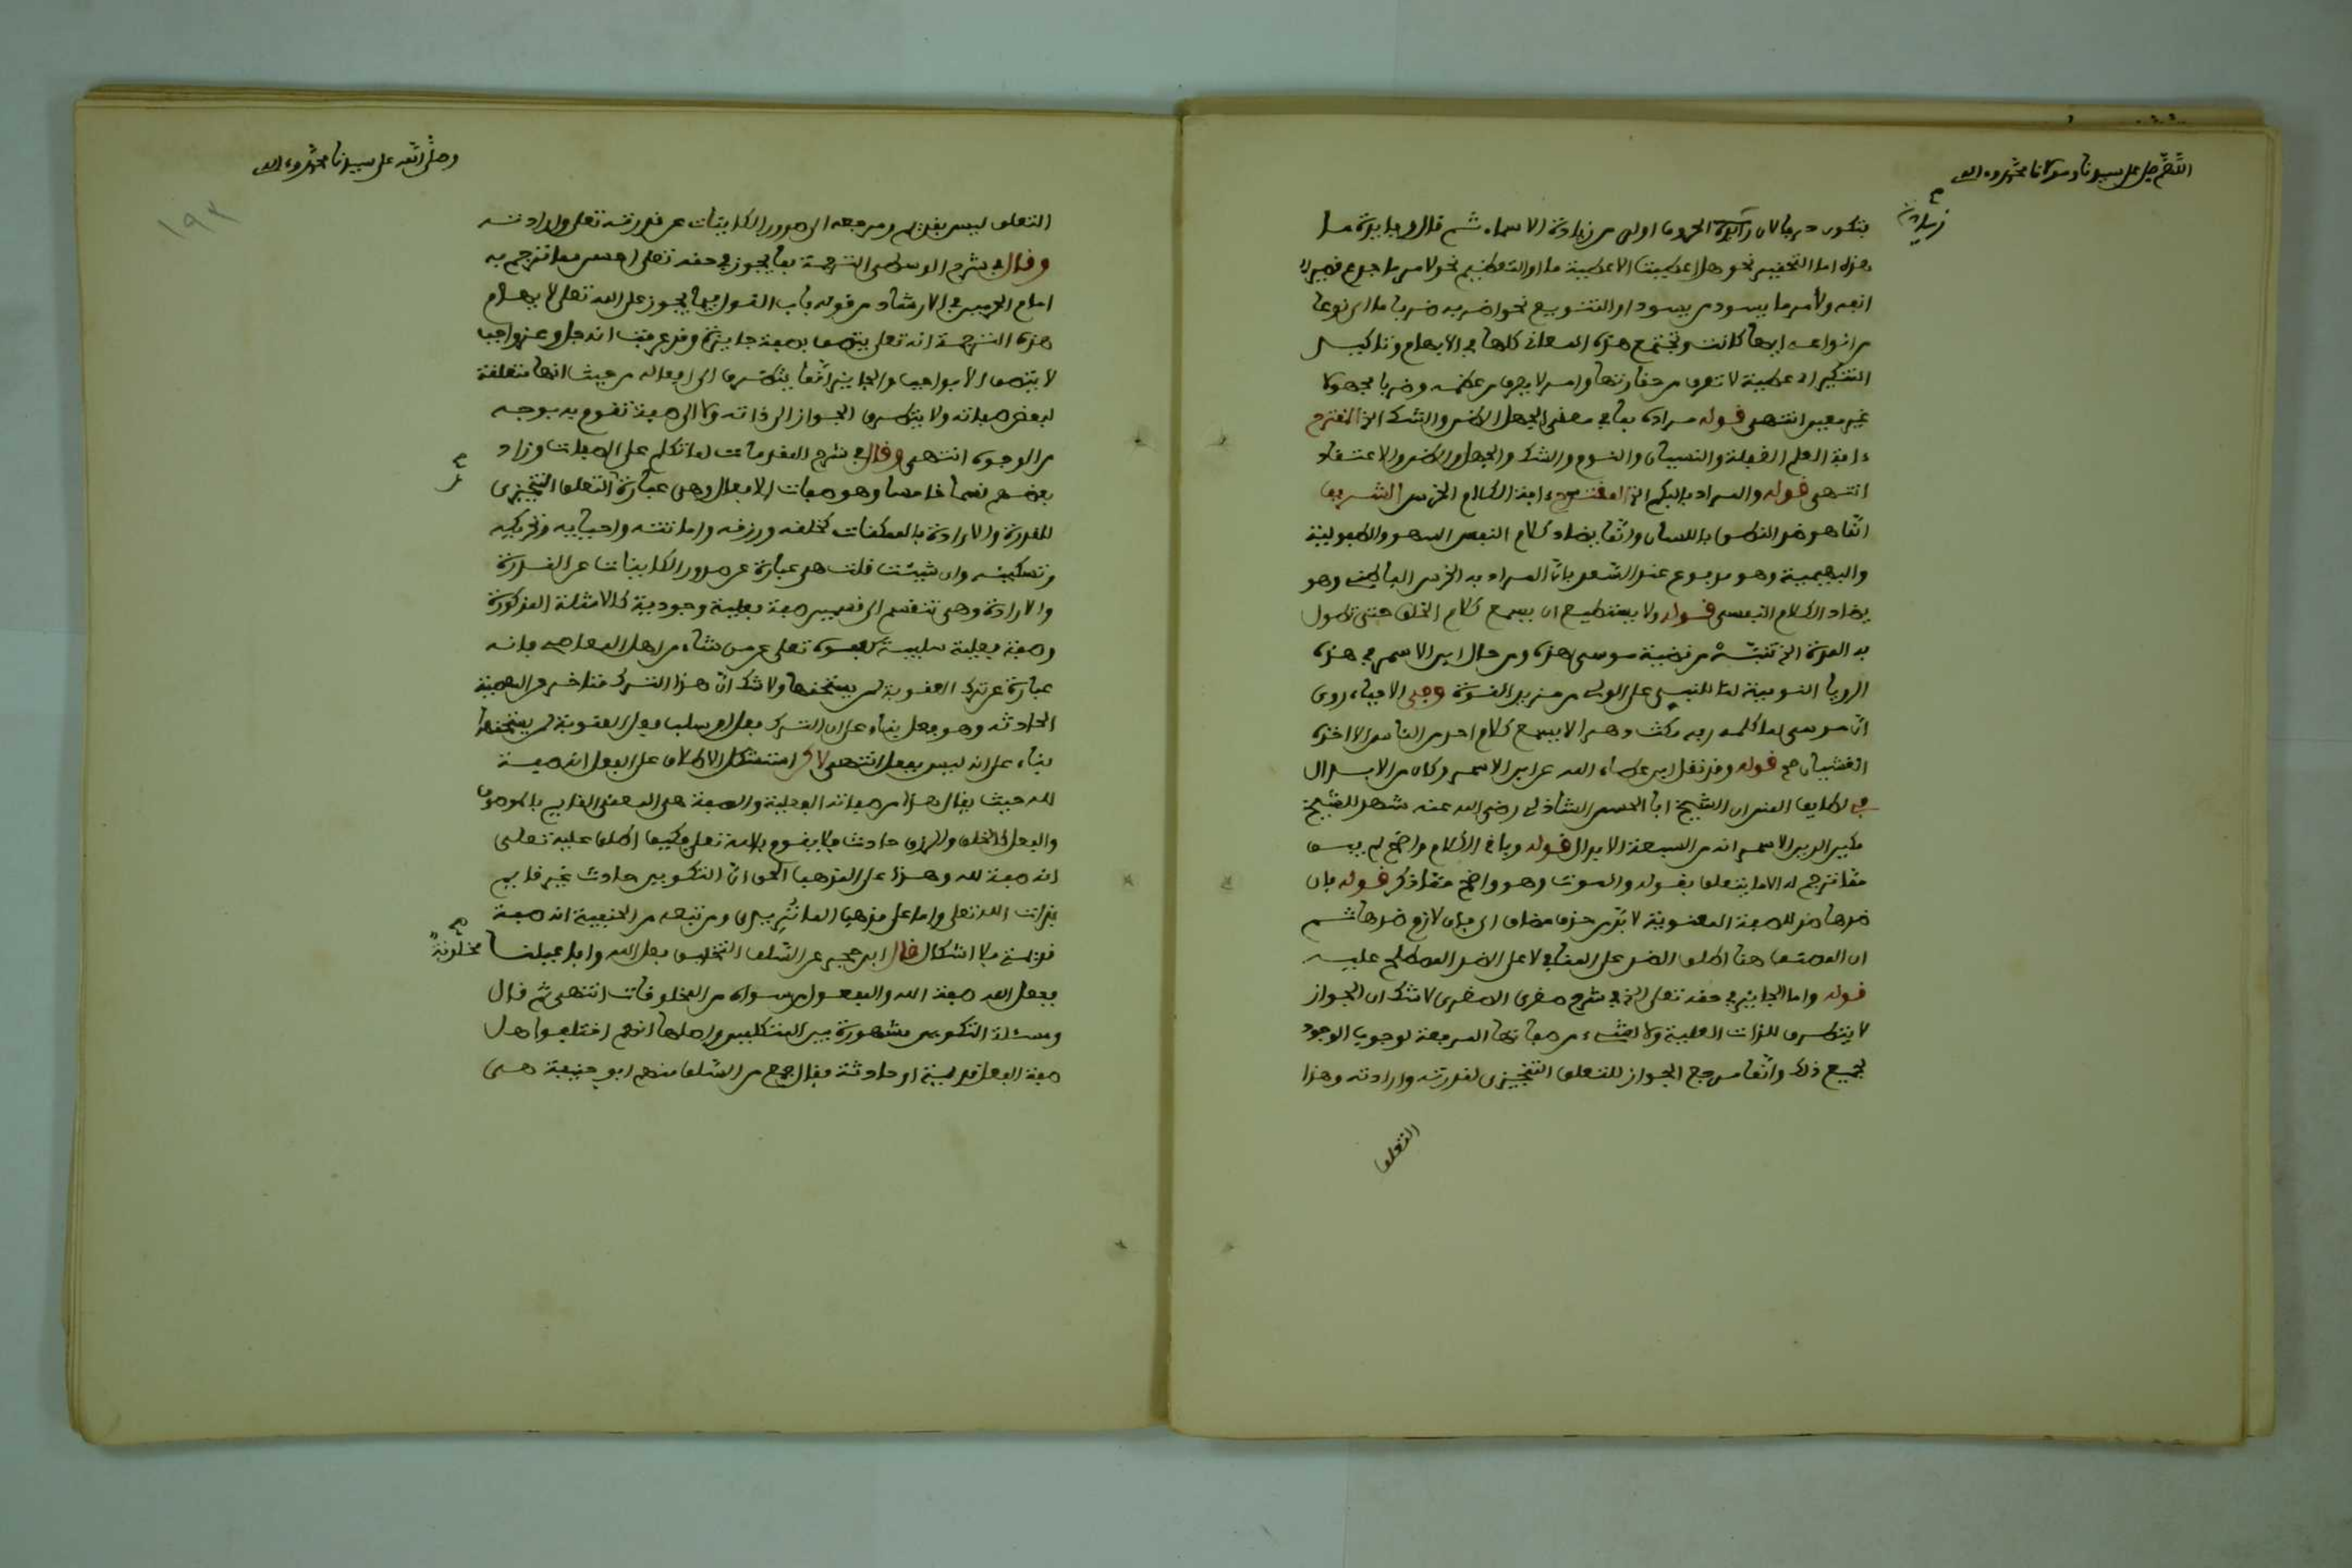 اللهم صل على سيدنا ومولانا محمد وءاله
زيادة
فتكون حرفا لان زيادة الحروف اولى من زيادة الاسماء ثم قال وفايدة ما
هذه اما التحفير نحو هل اعطيت الا عطية ما او التعظيم نحو لامر ما جدع قصير
انفه ولأمر ما يسود من يسود او التنويع نحو اضربه ضربا ما اي نوعا
من انواعه ايها كانت وتجتمع هذه المعاني كلها في الابهام وتاكيد
التنكير اي عطية لا تعرف من حقارتها وامر لا يعرف من عظمه وضربا مجهولا
غير معين انتهى قوله مراده بما في معنى الجهل الظن والشك الخ المقترح
ءافة العلم الغفلة والنسيان والنوم والشك والجهل والظن والاعتقاد
انتهى قوله والمراد بالبكم الخ المقترح ءافة الكلام الخرس الشريف
انما هو ضد النطق باللسان وانما يضاد كلام النفس السهو والطفولية
والبهيمية وهو مدفوع عند السعد بان المراد به الخرس الباطني وهو
يضاد الكلام النفسي قوله ولا يستطيع ان يسمع كلام الخلق حتى تطول
به المدة الخ تنبه من قضية موسى هذه ومن حال ابن الاسمر في هذه
الرويا النومية لما للنبي على الولي من مزيد القوة وفي الاحياء روي
ان موسى لما كلمه ربه مكث دهرا لا يسمع كلام احد من الناس الا اخذه
الغشيان صح قوله وقد نقل ابن عطاء الله عن ابن الاسمر وكان من الابدال
في لطايف المنن ان الشيخ ابا الحسن الشاذلي رضي الله عنه شهد للشيخ
مكين الدين الاسمر انه من السبعة الابدال قوله وباقي الكلام واضح لم يبق
مما ترجم له الا ما يتعلق بقوله والموت وهو واضح مما ذكر قوله بان
ضدها ضد للصفة المعنوية لا بد من حذف مضاف اي بان لازم ضدها ثم
ان المصنف هنا اطلق الضد على المنافي لا على الضد المصطلح عليه
قوله واما الجايز في حقه تعلى الخ في شرح صغرى الصغرى لا شك ان الجواز
لا يتطرق للذات العلية ولا لشيء من صفاتها المرفعة لوجوب الوجود
لجميع ذلك وانما مرجع الجواز للتعلق التنجيزي لقدرته وارادته وهذا
التعلق
وصلى الله على سيدنا محمد وءاله
١٩٢
التعلق ليس بقديم ومرجعه الى صدور الكاينات عن قدرته تعلى وارادته
وقال في شرح الوسطى الترجمة بما يجوز في حقه تعلى احسن مما ترجم به
امام الحرمين في الارشاد من قوله باب القول فيما يجوز على الله تعلى لايهام
هذه الترجمة انه تعلى يتصف بصفة جايزة وقد عرفت انه جل وعز واجب
لا يتصف الا بواجب والجايز انما يتطرق الى افعاله من حيث انها متعلقة
لبعض صفاته ولا يتطرق الجواز الى ذاته ولا الى صفة تقوم به بوجه
من الوجوه انتهى وقال في شرح المقدمات لما تكلم على الصفات وزاد
بعضهم قسما خامسا وهو صفات الافعال وهي عبارة التعلق التنجيزي
للقدرة والارادة بالممكنات كخلقه ورزقه واماتته واحيايه وتحريكه
وتسكينه وان شيئت قلت هي عبارة عن صدور الكاينات عن القدرة
والارادة وهي تنقسم الى قسمين صفة فعلية وجودية كالامثلة المذكورة
وصفة فعلية سلبية كعفوه تعلى عن من شاء من اهل المعاصي فانه
عبارة عن ترك العقوبة لمن يستحقها ولا شك ان هذا الترك متاخر
الحادثة وهو فعل بناء على ان الترك فعل او سلب فعل العقوبة لمن يستحقها
بناء على انه ليس بفعل انتهى لاكن استشكل الاطلاق على الفعل انه صفة
لله حيث يقال هذا من صفاته الفعلية والصفة هي المعنى القايم بالموصوف
والفعل كالخلق والرزق حادث فلا يقوم بالله تعلى فكيف اطلق عليه تعلى
انه صفة لله وهذا على المذهب الحق ان التكوين حادث غير قايم
بذات الله تعلى واما على مذهب الماتريدي ومن تبعه من الحنفية انه صفة
قديمة فلا اشكال قال ابن حجر عن السلف التخليق فعل الله وافاعيلنا مخلوقة
ففعل الله صفة الله والمفعول من سواه من المخلوقات انتهى ثم قال
ومسئلة التكوين مشهورة بين المتكلمين واصلها انهم اختلفوا هل
صفة الفعل قديمة او حادثة فقال جمع من السلف منهم ابو حنيفة هي